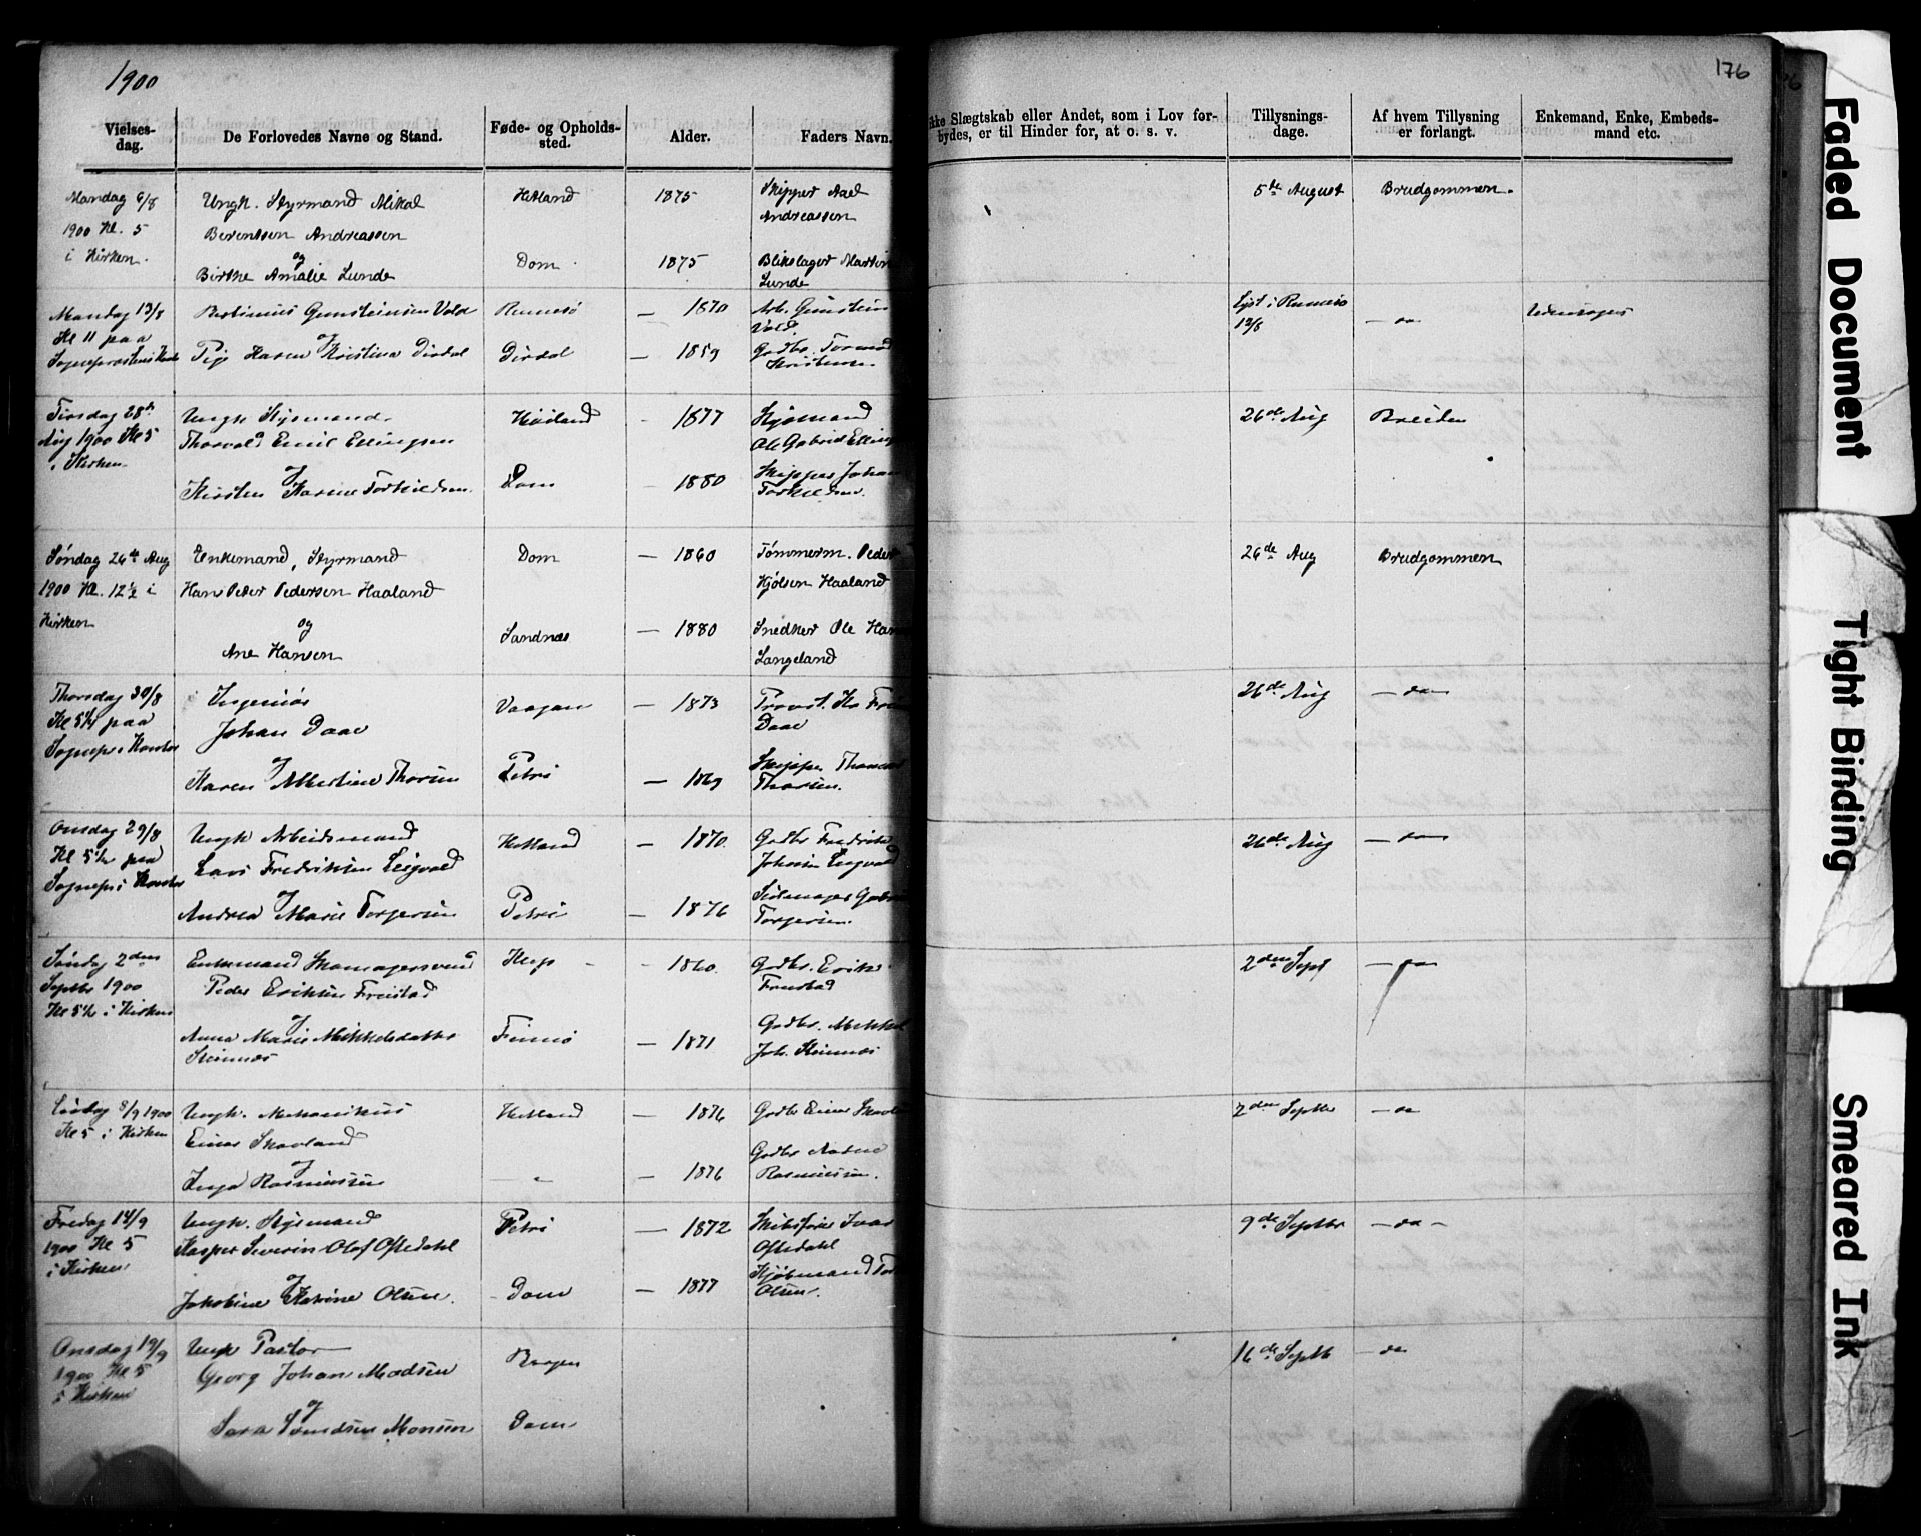 1900
176
Vielses-
dag.
De Forlovedes Navne og Stand.
Føde- og Opholds-
sted.
Alder.
Faders Navn.
Slægtskab eller Andet, som i Lov for-
bydes, er til Hinder for, at o. s. v.
Tillysnings-
dage.
Af hvem Tillysning
er forlangt.
Enkemand, Enke, Embeds-
mand etc.
Mandag 6/8
1900 Kl. 5
i Kirken.
Ungk. Styrmand Mikal
Berentsen Andreassen
og
Birthe Amalie Lunde
Hetland
Dom
1875
1875
Skipper Aad
Andreassen
Blikslager Martin
Lunde
5te August
Brudgommen.
Mandag 13/8
Kl 11 paa
Gunsteinsen Vold
og
Pige Karen Kristina Dirdal
Rennesø
Dirdal
— 1870
— 1859
Arb. Gunstein
Vold.
Gdbr.
Lyst i Rennesø
12/8
— do
Tirsdag 28de
Aug 1900 Kl 5
i Kirken
Ungk Styrmand
Thorvald Emil Ellingsen
og
Kirsten Karine Torkildsen.
Høiland
Dom
— 1877
— 1880
Ole Gabriel
Skipper Johan
Torkildsen.
26de Aug
Bruden
Søndag 26de Aug
1900 Kl. 12½ i
Kirken
Enkemand, Styrmand
Hans Peter Pedersen Haaland
og
Ane Hansen
Dom
Sandnæs
— 1860
— 1880
Tømmerm. Peder
Kjølsen Haaland
Snedker Ole
Langeland
26de Aug
Brudgommen
Thorsdag 30/8
Kl 5½ paa
Ingeniør
Johan Daae
og
Karen Albertine Thorsen
Vaagan
Petri
— 1873
— 1869
Provst
Daae
Skipper
Thorsen.
26de Aug
— do —
Onsdag 29/8
Kl 5½ paa
Ungk Arbeidsmand
Lars Fredriksen Leigvold
og
Andrea Marie Torgersen
Hetland
Petri
— 1870.
— 1876
Gdbr Fredrik
Torgersen.
26de Aug
— do
Søndag 2den
Septbr 1900
Kl 5½ i Kirken
Enkemand Skomagersvend
Peder Eriksen Frøstad
og
Anna Marie Mikkelsdatter
Steinnæs
Klep
Finnø
— 1860.
— 1871
Gdbr. Erik
Frøstad
Gdbr. Mikkel
Joh. Steinnæs
2den Sept
— do
Lørdag 8/9 1900
Kl 5 i Kirken
Ungk. Mekanikus
Einar Skavland
og
Inga Rasmussen
Hetland
— 1876
— 1876
Gdbr
Gdbr
Rasmussen.
2den Septbr
— do
Fredag 14/9
1900 Kl 5
i Kirken
Ungk. Styrmand
Kasper Severin Olaf Oftedahl
og
Jakobine Katrine Olsen.
Petri
Dom
— 1872
— 1877
Skibsfører Ivar
Oftedahl
Kjøbmand
Olsen.
9de Septbr
— do —
Onsdag 19/9
1900 Kl 5
i Kirken
Ungk Pastor
Georg Johan Madsen
og
Sara Monsen
Bergen
Dom
16de Septb
— do
Faded Document
Tight Binding
Smeared Ink